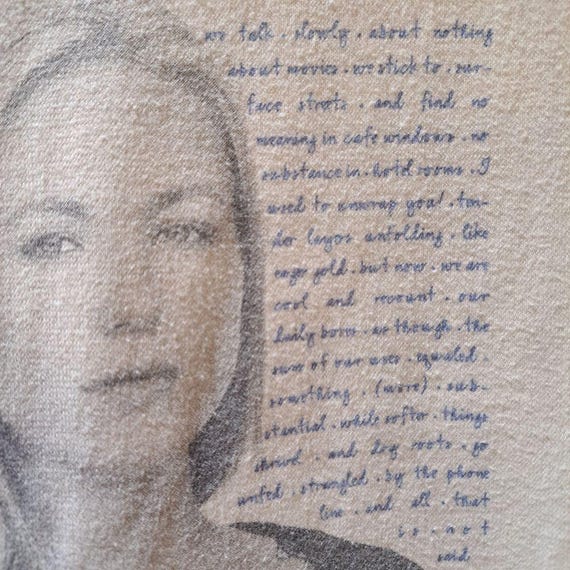 we talk . slowly . about nothing
about movies . we stick to . sur-
face streets . and find no
meaning in cafe windows . no
substance in . hotel rooms . I
used to unwrap you! . ten-
der layers unfolding . like
eager gold . but now . we are
cool and recount . our
daily bores . as though . the
sum of our uses . equaled .
something . (more) . sub-
stantial . while softer . things
shrivel . and dry roots . go
unfed . strangled . by the phone
line . and all . that
is . not
said